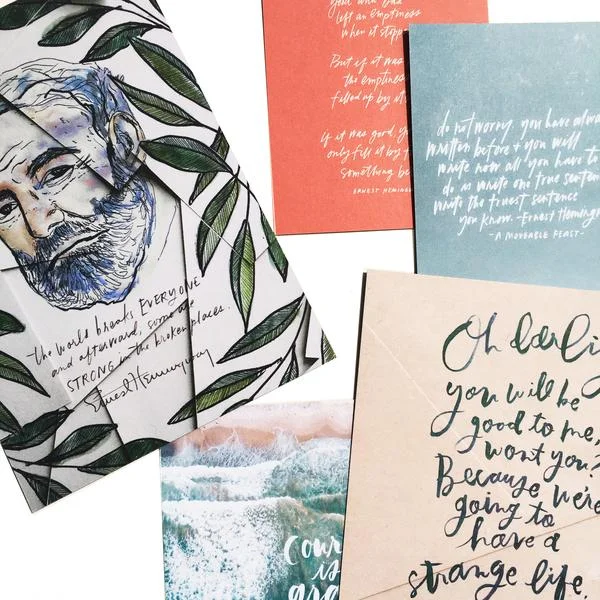 the world breaks EVERYONE
and afterward, some are
STRONG in the broken places.
Ernest Hemingway
left an emptiness
when it stopp
But if it was
the emptines
filled up by it
if it was good, y
only fill it by
something be
ERNEST HEMING
do not worry. you have alwa
written before & you will
write now. all you have to
do is write one true senten
write the truest sentence
you know. -Ernest Heming
-A MOVEABLE FEAST-
Oh darli
you will be
good to me,
wont you?
Because we're
going to
have a
strange life.
Cour
is
gra